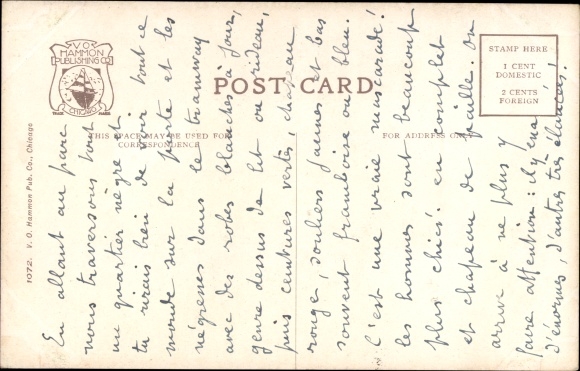 V.O. HAMMON
PUBLISHING CO
CHICAGO
TRADE MARK
POST CARD
STAMP HERE
1 CENT
DOMESTIC
2 CENTS
FOREIGN
THIS SPACE MAY BE USED FOR
CORRESPONDENCE
FOR ADDRESS ONLY
1072. V. O. Hammon Pub. Co., Chicago
En allant au parc
nous traversons tout
un quartier nègre et
tu rirais bien de voir tout ce
monde sur la porte et les
négresses dans le tramway
avec des robes blanches à jour,
genre dessus de lit ou rideau,
puis ceintures vertes, chapeau
rouge, souliers jaunes et bas
souvent framboise ou bleu.
C'est une vraie mascarade!
les hommes sont beaucoup
plus chics: en complet
et chapeau de paille. On
arrive à ne plus y
faire attention: il y en a
d'énormes, d'autres très élancées!